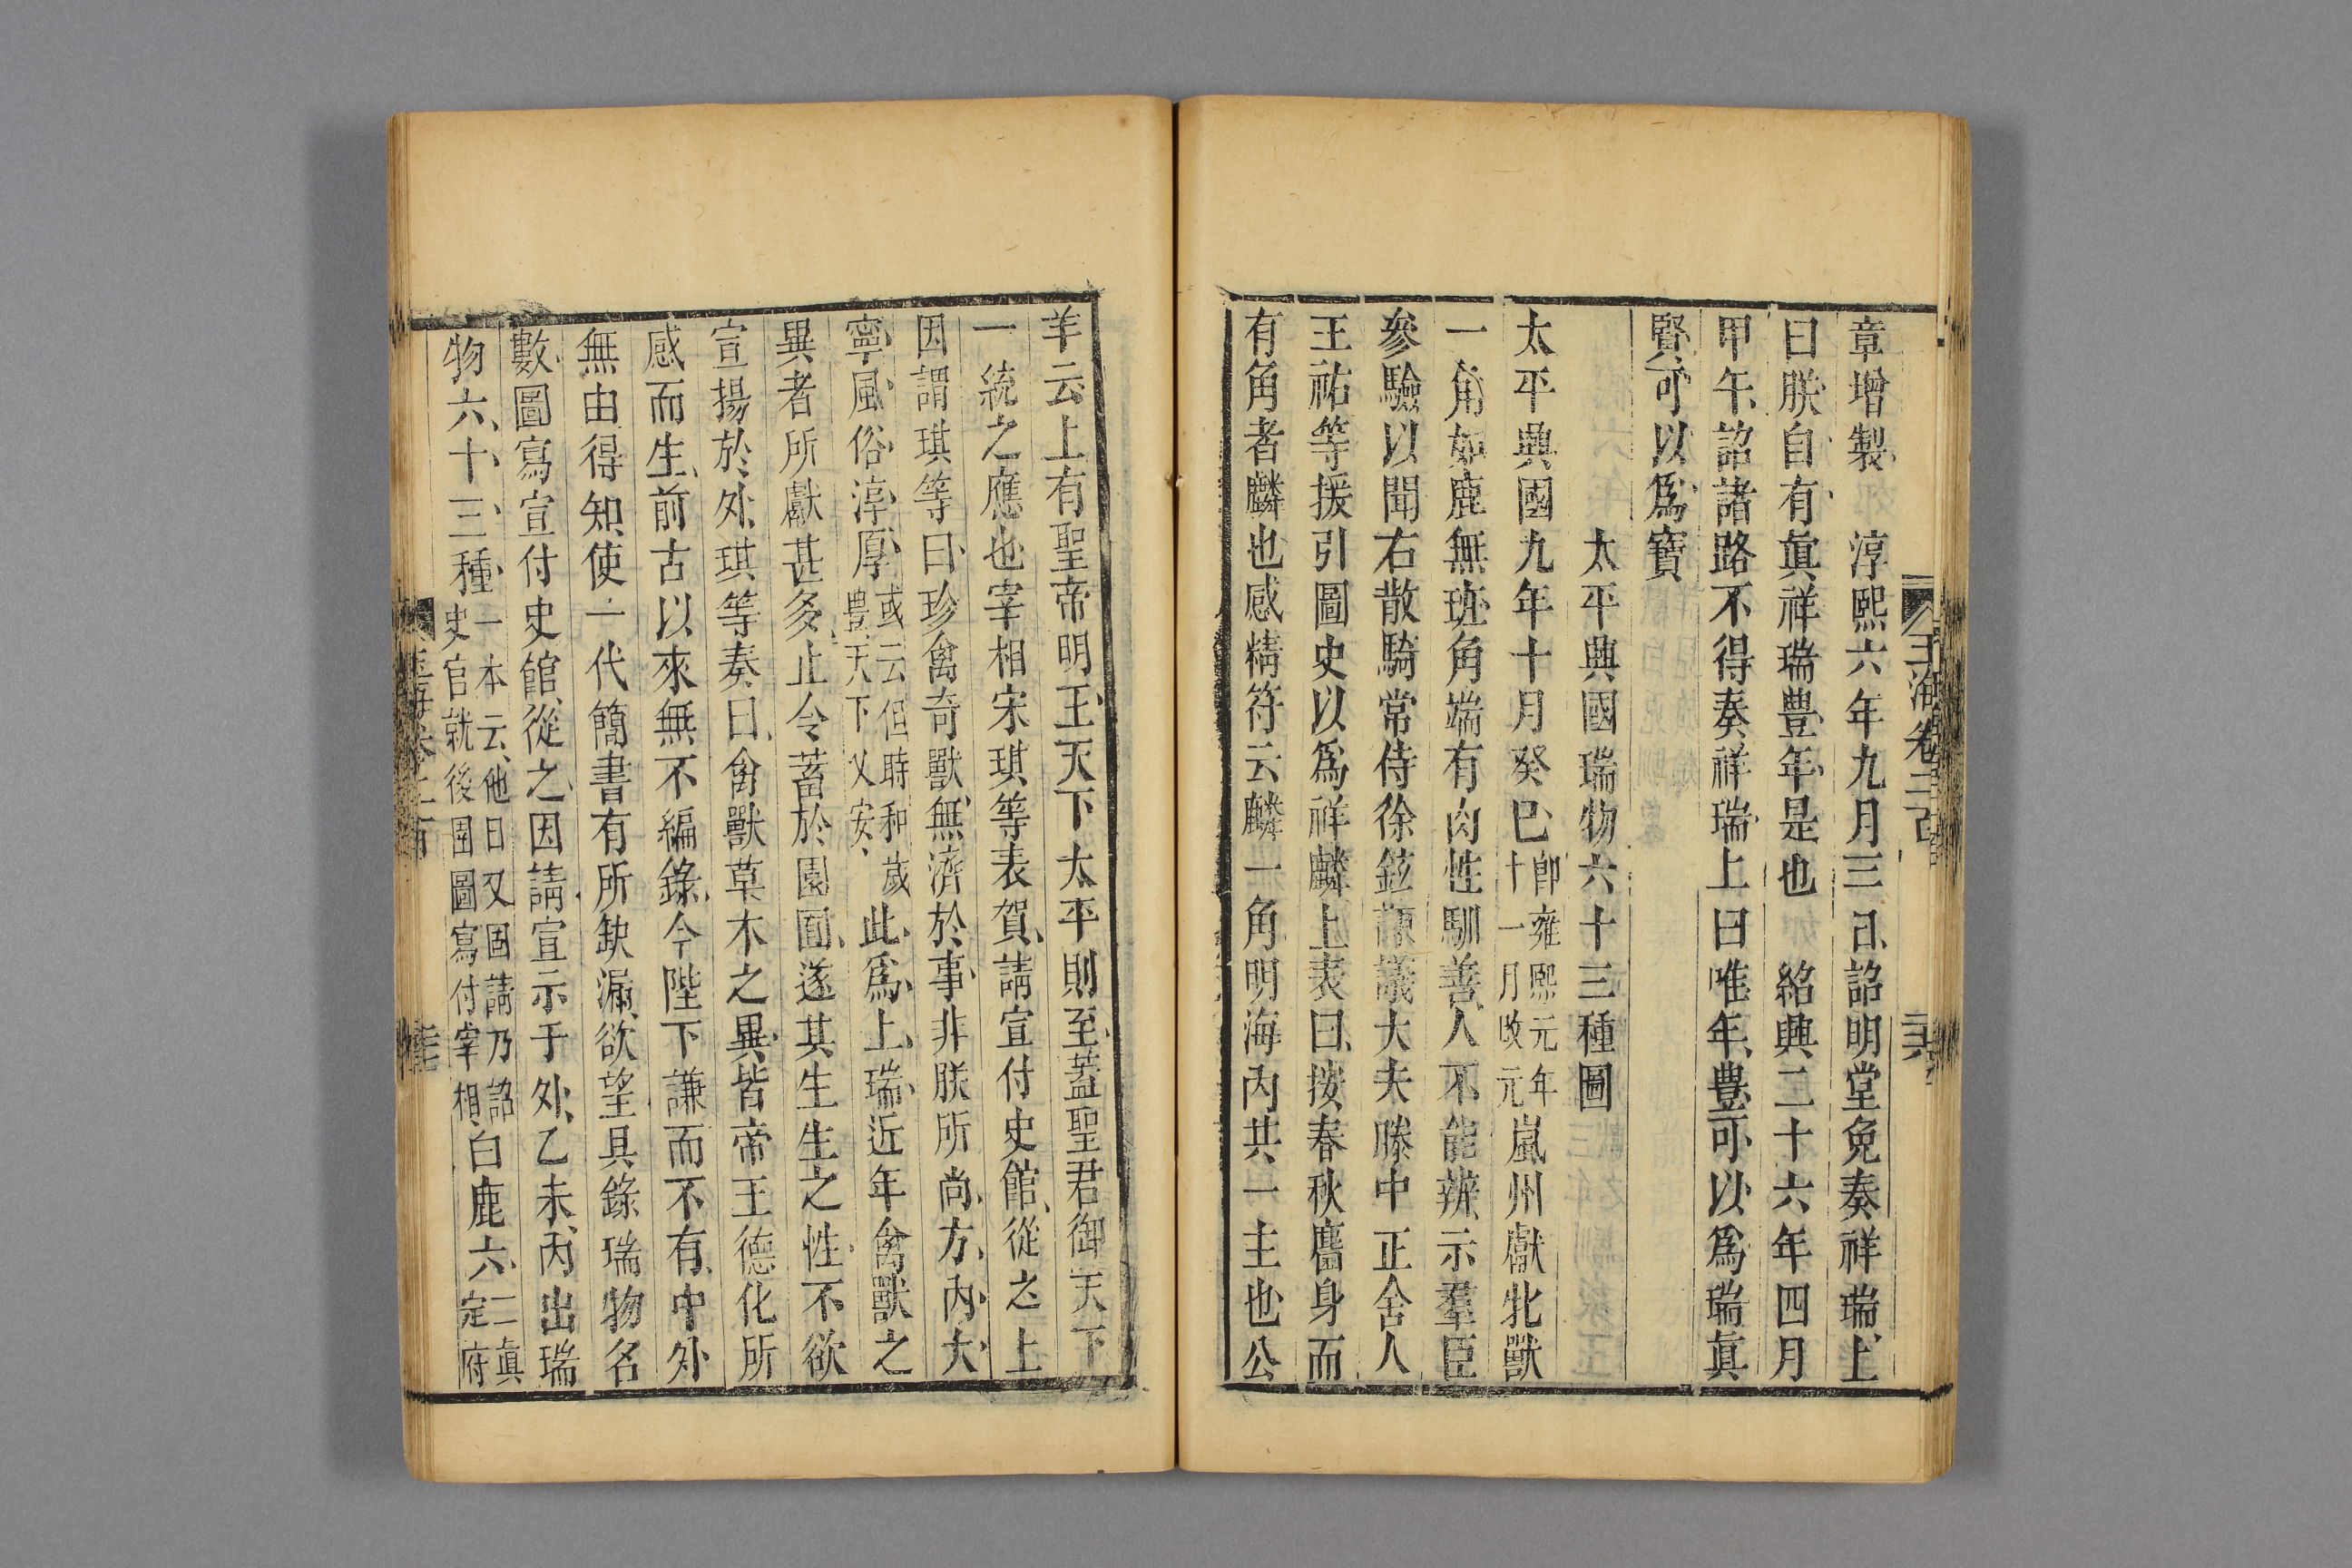 章增製　淳熙六年九月三日詔明堂免奏祥瑞上
曰朕自有眞祥瑞豊年是也　紹興二十六年四月
甲午詔諸路不得奏祥瑞上曰唯年豊可以爲瑞眞
賢可以爲寶
太平興國瑞物六十三種圖
太平興國九年十月癸巳即雍熙元年十一月改元嵐州獻牝獸
一角如鹿無班角端有肉性馴善人不能辨示羣臣
參驗以聞右散騎常侍徐鉉諫議大夫滕中正舍人
王祐等援引圖史以爲祥麟上表曰按春秋麕身而
有角者麟也感精符云麟一角明海內共一主也公
羊云上有聖帝明王天下太平則至蓋聖君御天下
一統之應也宰相宋琪等表賀請宣付史館從之上
因謂琪等曰珍禽奇獸無濟於事非朕所尚方內大
寧風俗淳厚或云但時和歲豊天下乂安此爲上瑞近年禽獸之
異者所獻甚多止令蓄於園囿遂其生生之性不欲
宣揚於外琪等奏曰禽獸草木之異皆帝王德化所
感而生前古以來無不編錄今陛下謙而不有中外
無由得知使一代簡書有所缺漏欲望具錄瑞物名
數圖寫宣付史館從之因請宣示于外乙未內出瑞
物六十三種一本云他日又固請乃詔史官就後園圖寫付宰相白鹿六二眞定府
玉海卷二百